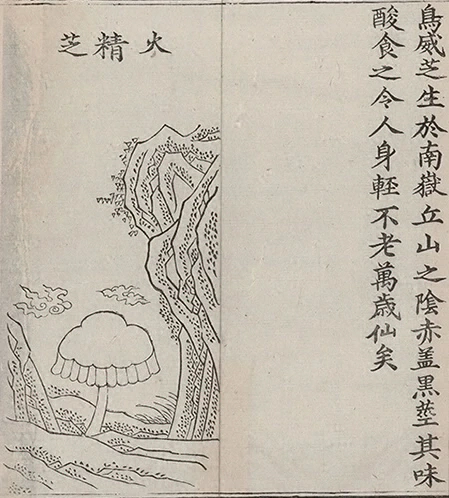 鳥威芝生於南嶽丘山之陰赤盖黑莖其味
酸食之令人身輕不老萬歲仙矣
火精芝